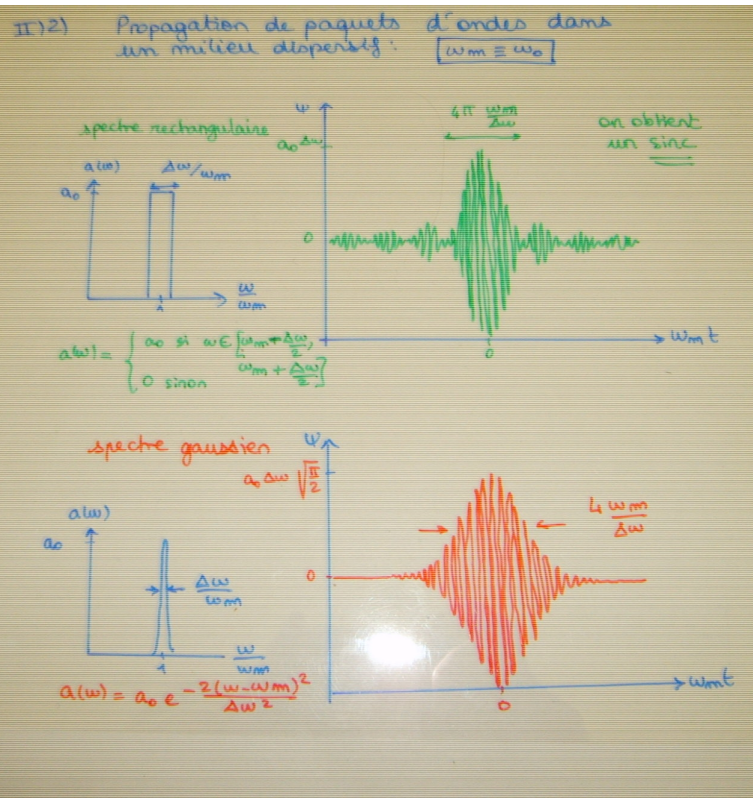 II)2) Propagation de paquets d'ondes dans
un milieu dispersif : ωm ≡ ω0
spectre rectangulaire
a(ω)
a0
Δω/ωm
1
ω/ωm
a(ω) = { a0 si ω ∈ [ωm + Δω/2,
ωm + Δω/2]
0 sinon
ψ
a0 Δω
0
4π ωm/Δω
on obtient
un sinc
0
ωm t
spectre gaussien
a(ω)
a0
Δω/ωm
1
ω/ωm
a(ω) = a0 e^(-2(ω-ωm)²/Δω²)
ψ
a0 Δω √(π/2)
0
4 ωm/Δω
0
ωm t